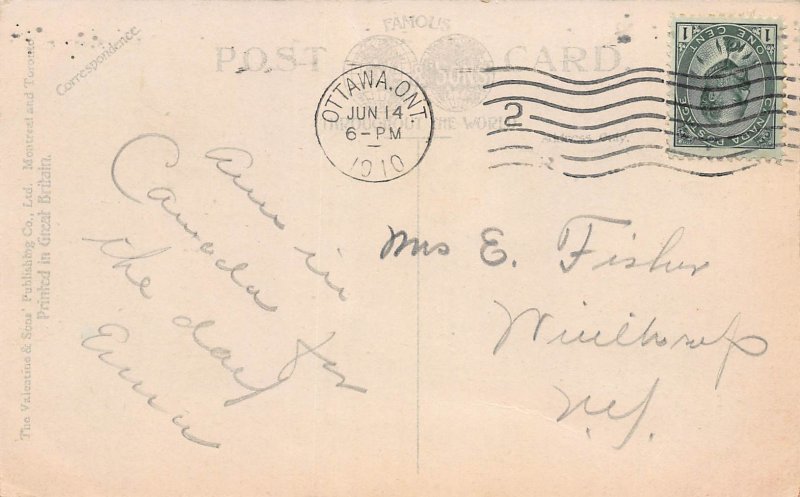 FAMOUS
POST CARD
THROUGHOUT THE WORLD
Correspondence.
Address Only.
The Valentine & Sons' Publishing Co., Ltd. Montreal and Toronto
Printed in Great Britain.
OTTAWA. ONT.
JUN 14
6-PM
1910
2
1 1
ONE CENT
CANADA POSTAGE
Am in
Canada for
the day
Emma
Mrs E. Fisher
Winthrop
N.Y.